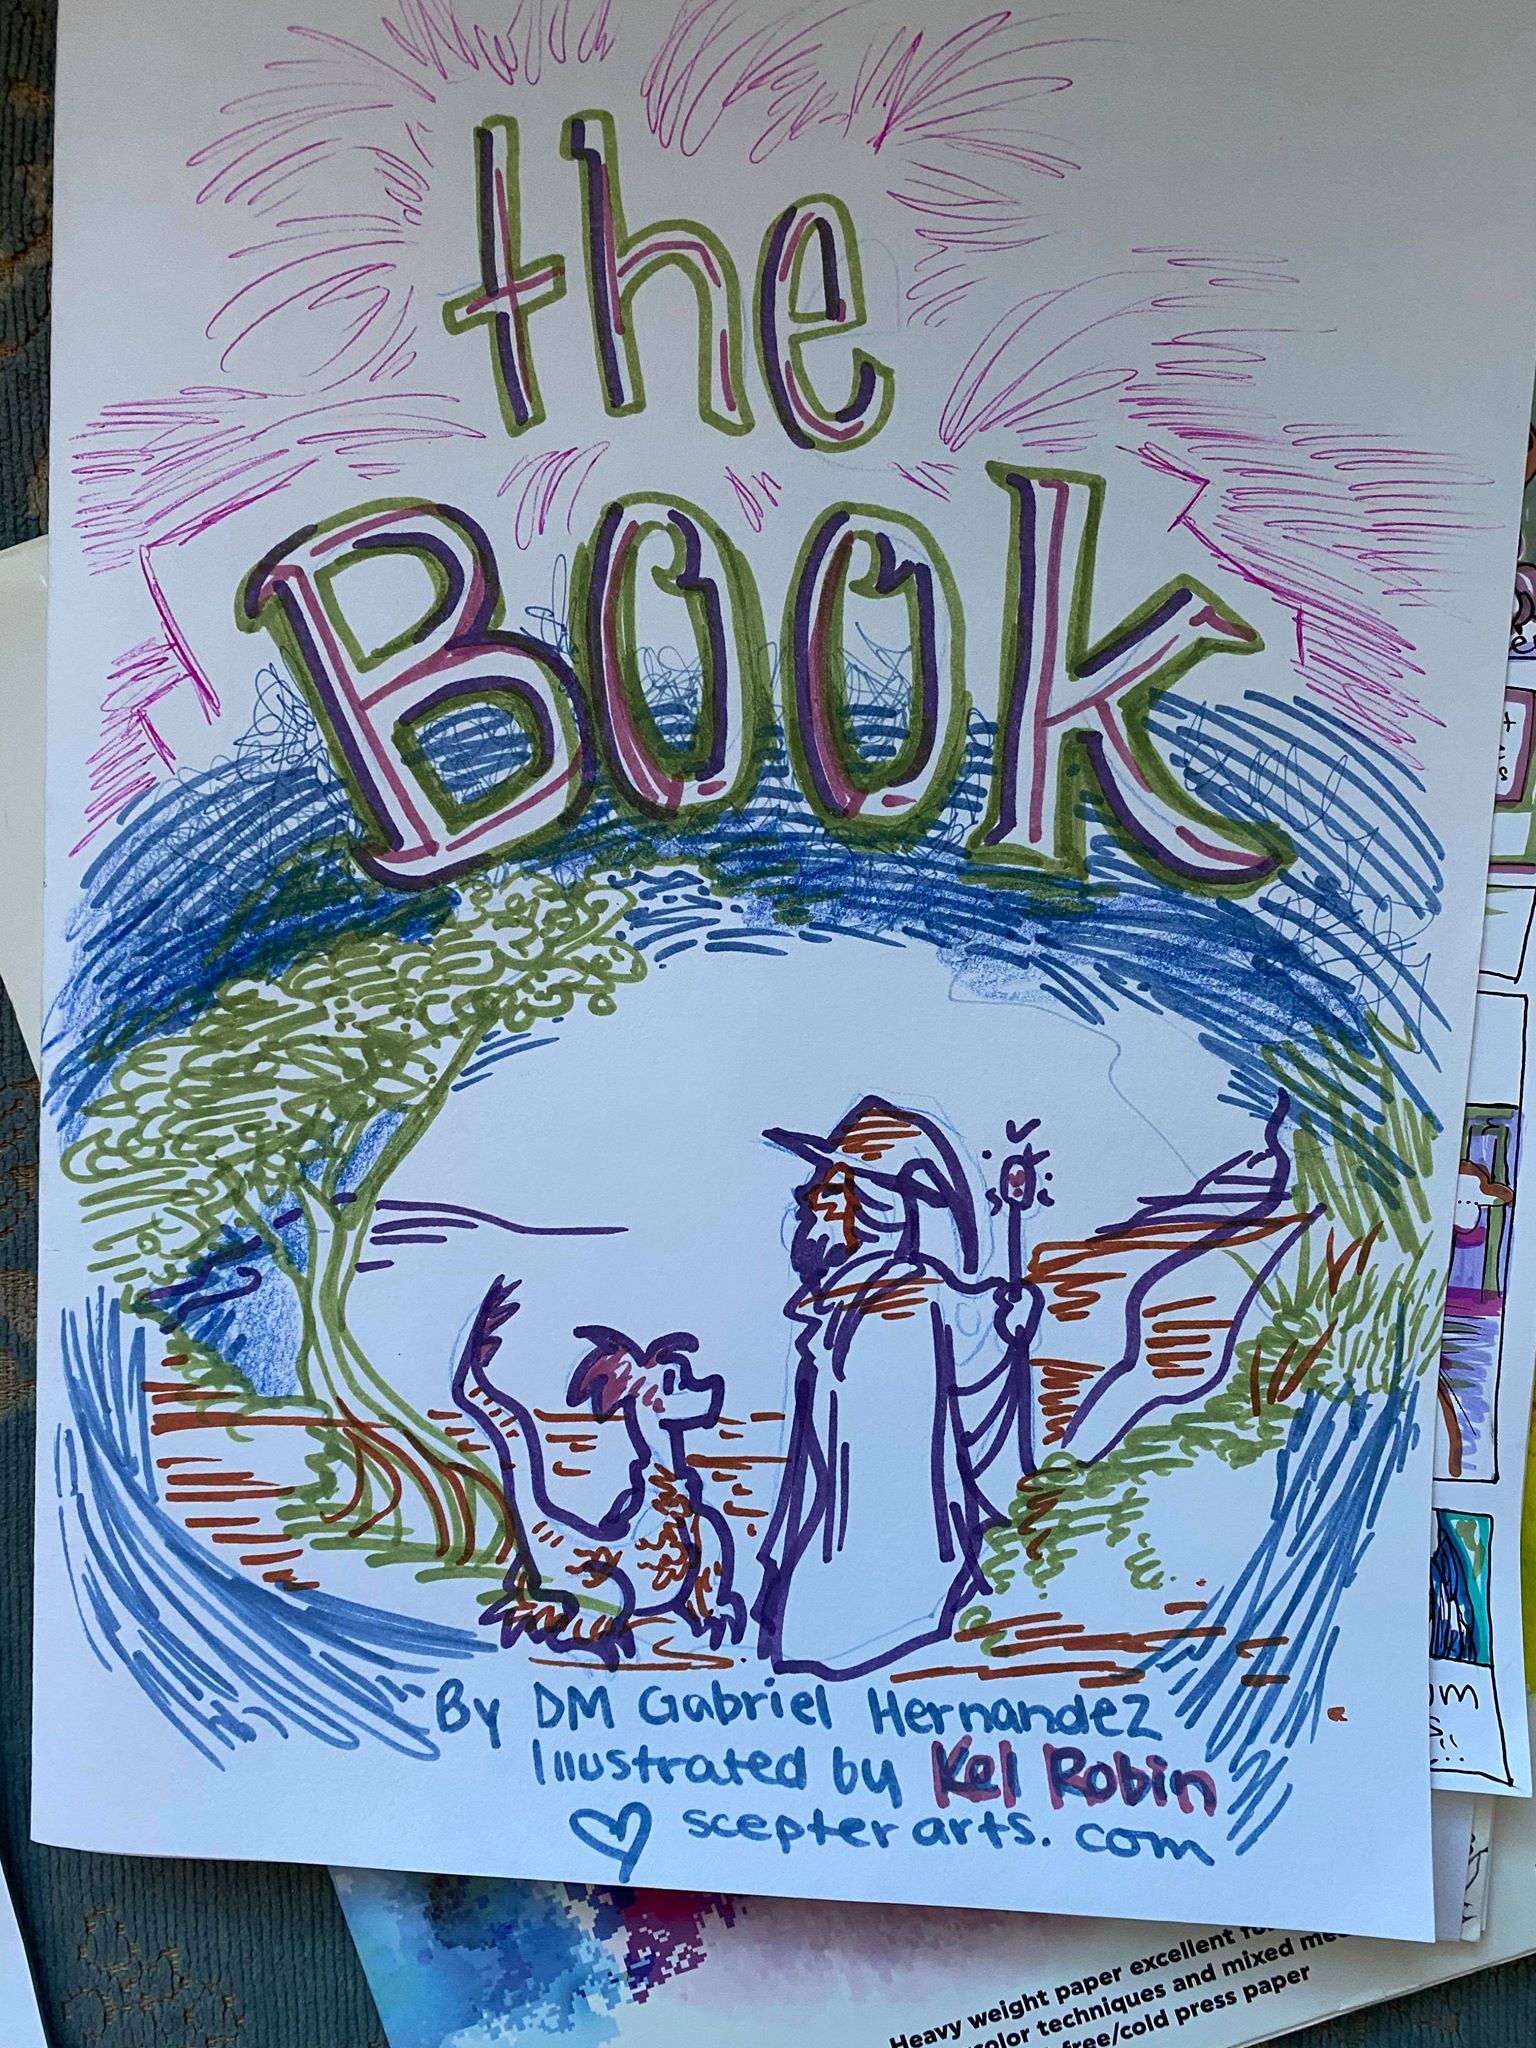 the
Book
By DM Gabriel Hernandez
Illustrated by Kel Robin
scepterarts.com
Heavy weight paper excellent
techniques and mixed
free/cold press paper